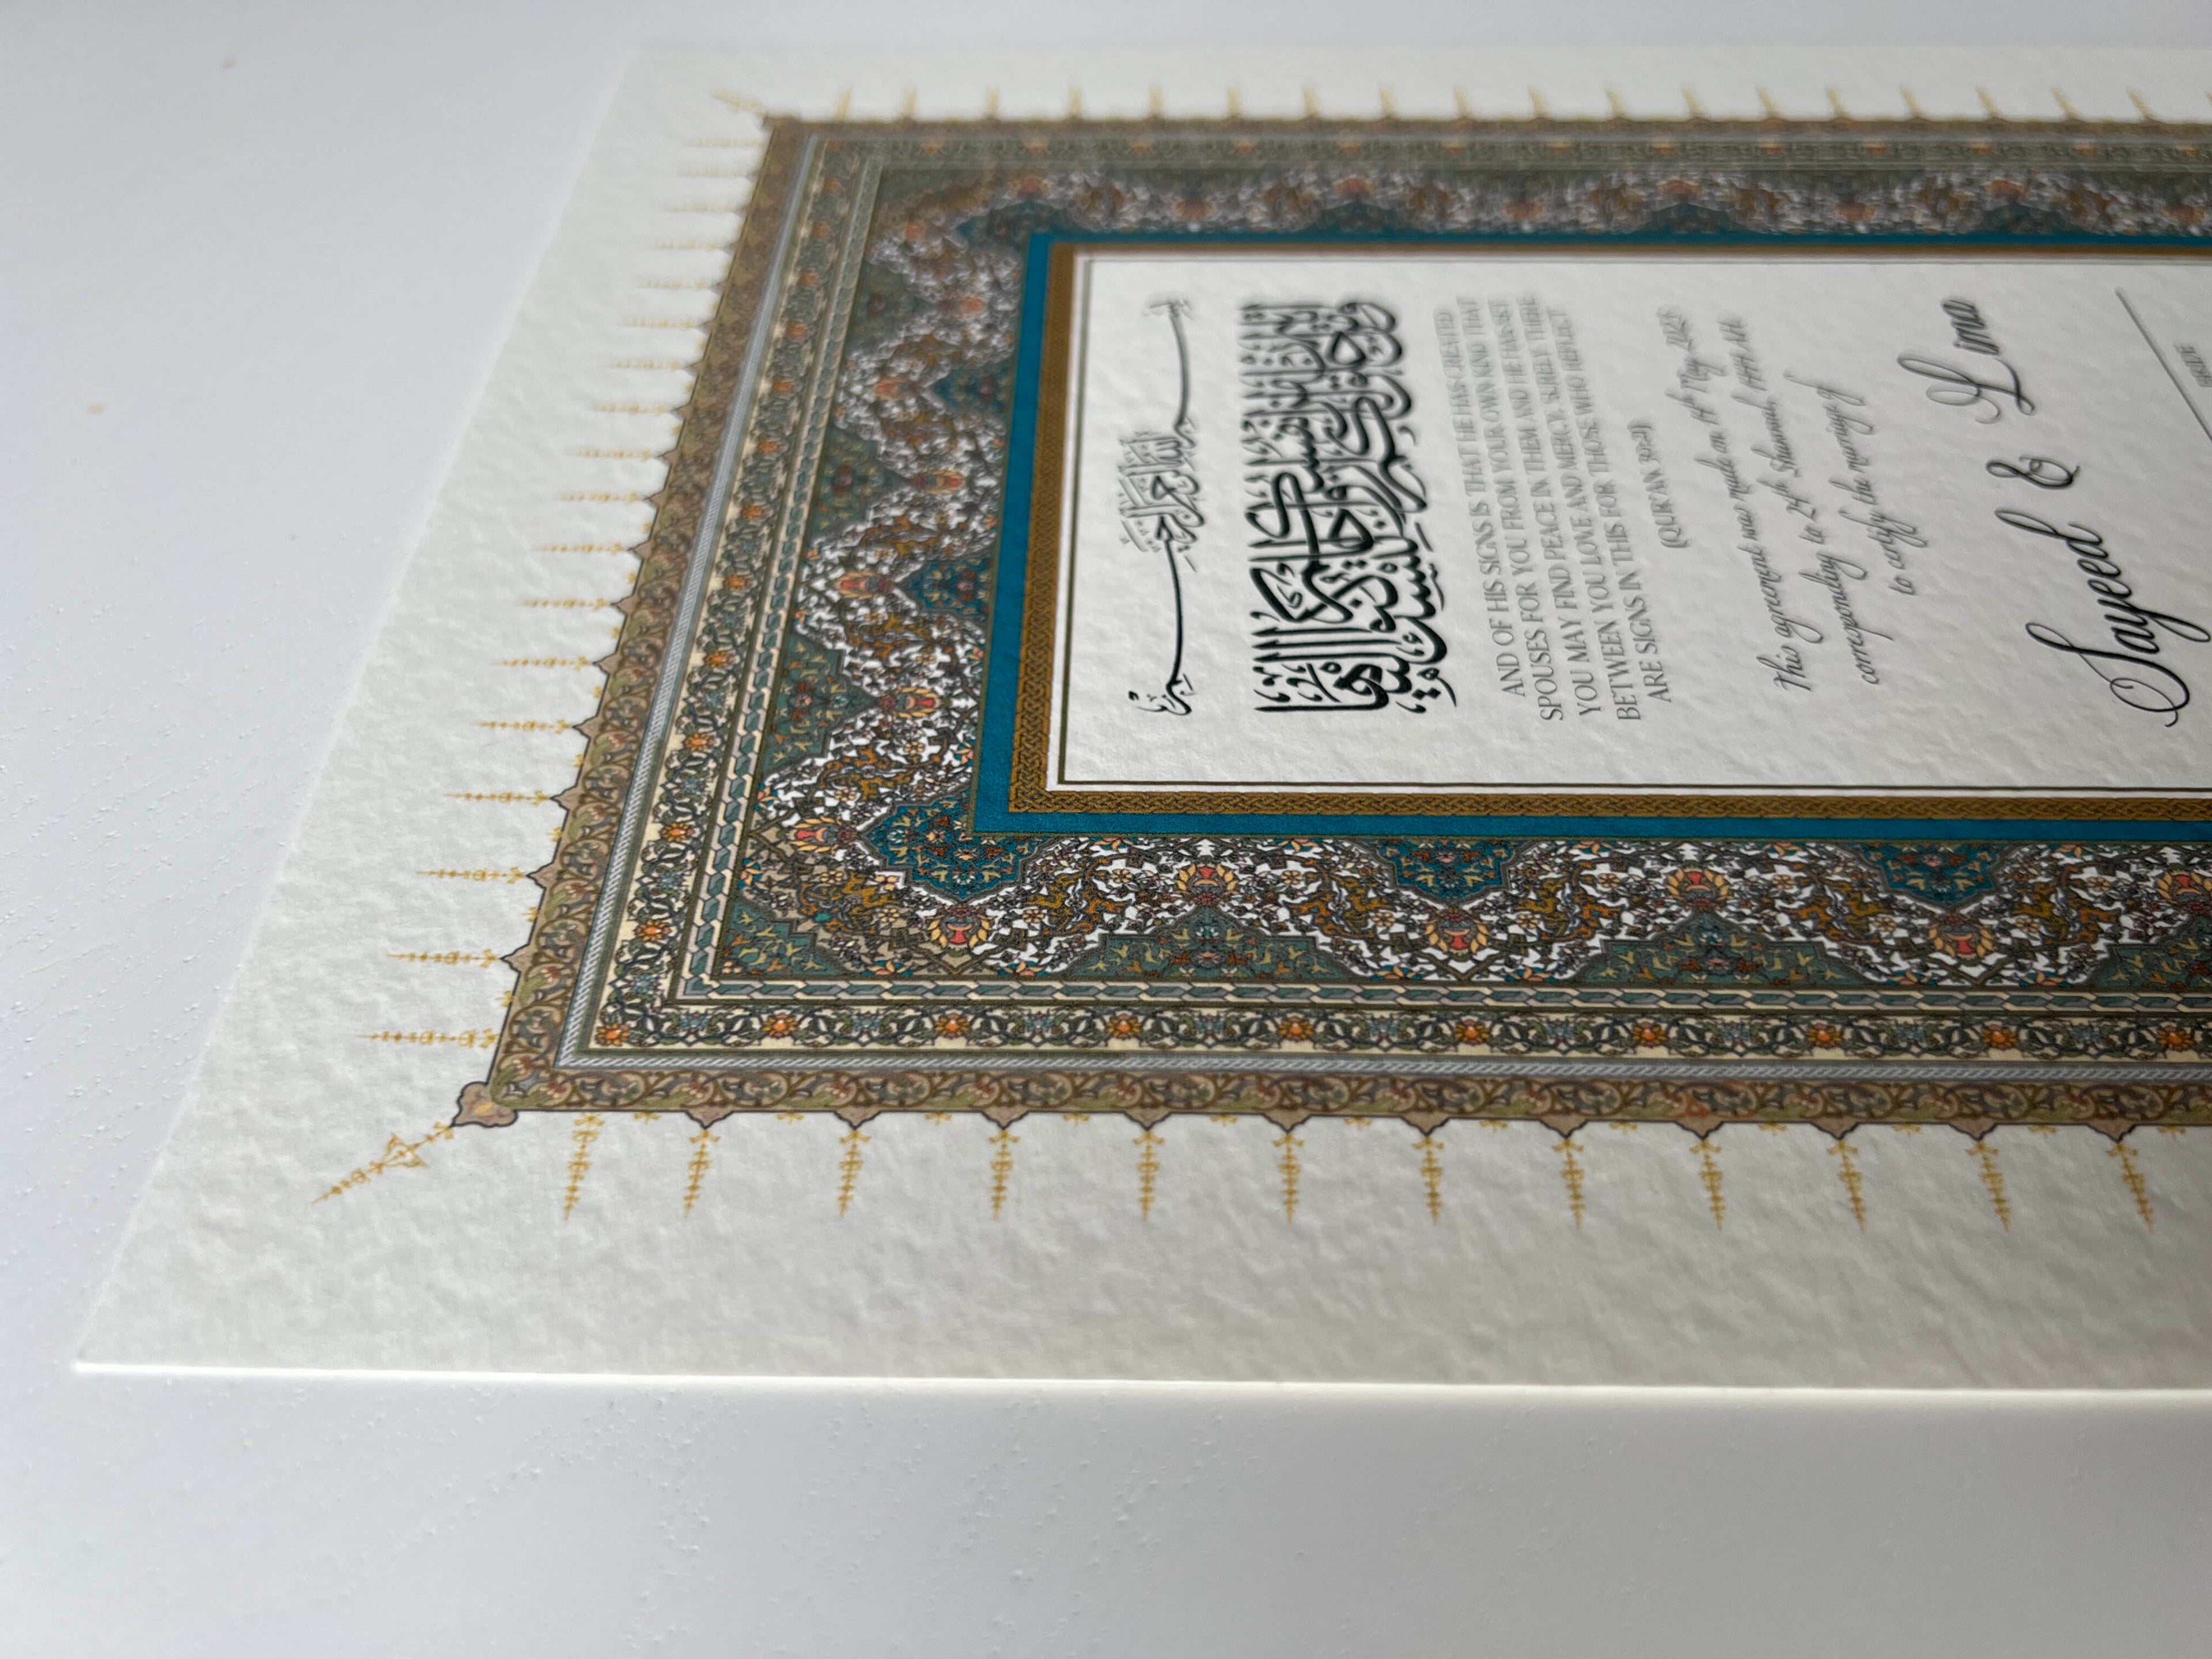 بسم الله الرحمن الرحيم
AND OF HIS SIGNS IS THAT HE HAS CREATED
SPOUSES FOR YOU FROM YOUR OWN KIND THAT
YOU MAY FIND PEACE IN THEM AND HE HAS SET
BETWEEN YOU LOVE AND MERCY. SURELY THERE
ARE SIGNS IN THIS FOR THOSE WHO REFLECT
(QUR'AN 30:21)
This agreement was made on 14th May 2023
corresponding to 24th Shawwal, 1444 AH
to certify the marriage of
Sayeed & Lima
BRIDE